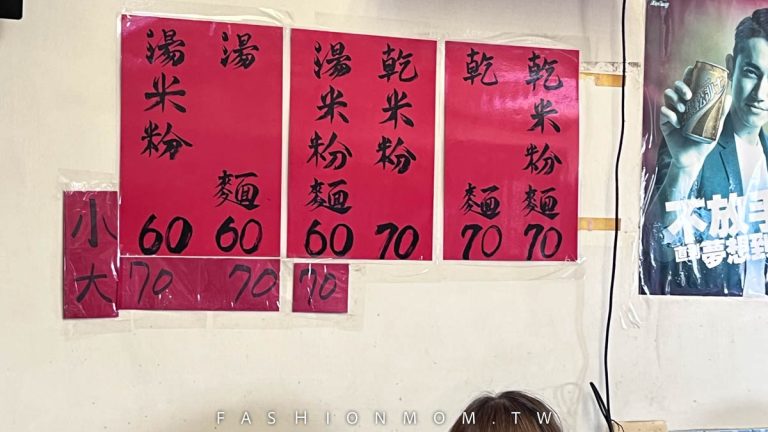 湯米粉 60 70
湯麵 60 70
湯米粉麵 60 70
乾米粉 70
乾麵 70
乾米粉麵 70
小
大
不放手
直到夢想到
FASHIONMOM.TW